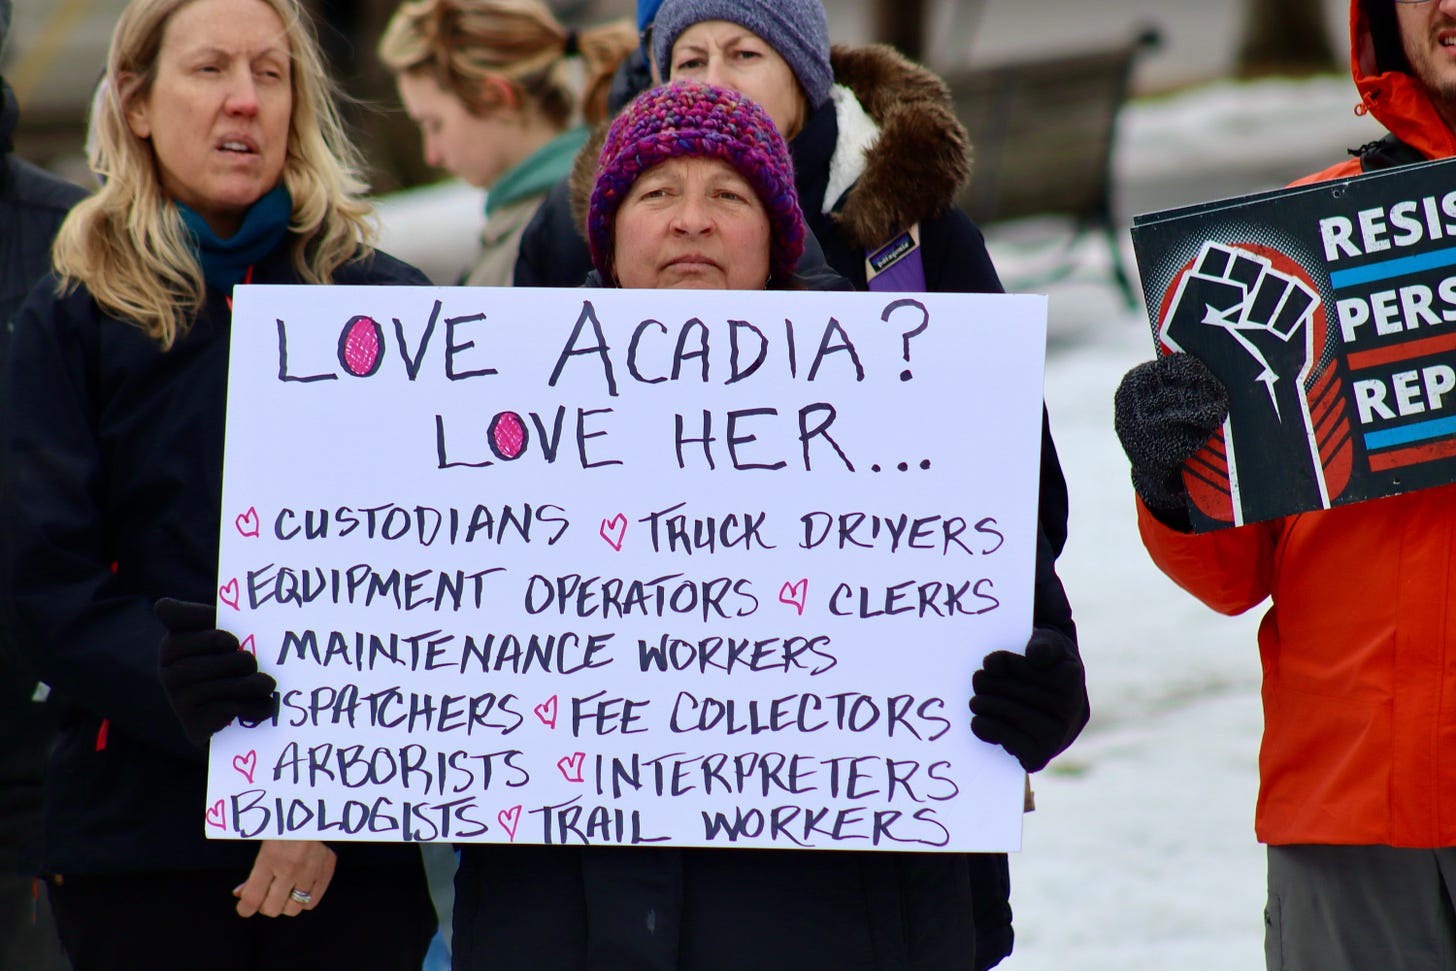 LOVE ACADIA?
LOVE HER...
CUSTODIANS TRUCK DRIVERS
EQUIPMENT OPERATORS CLERKS
MAINTENANCE WORKERS
ISPATCHERS FEE COLLECTORS
ARBORISTS INTERPRETERS
BIOLOGISTS TRAIL WORKERS
RESIS
PERS
REP
patagonia